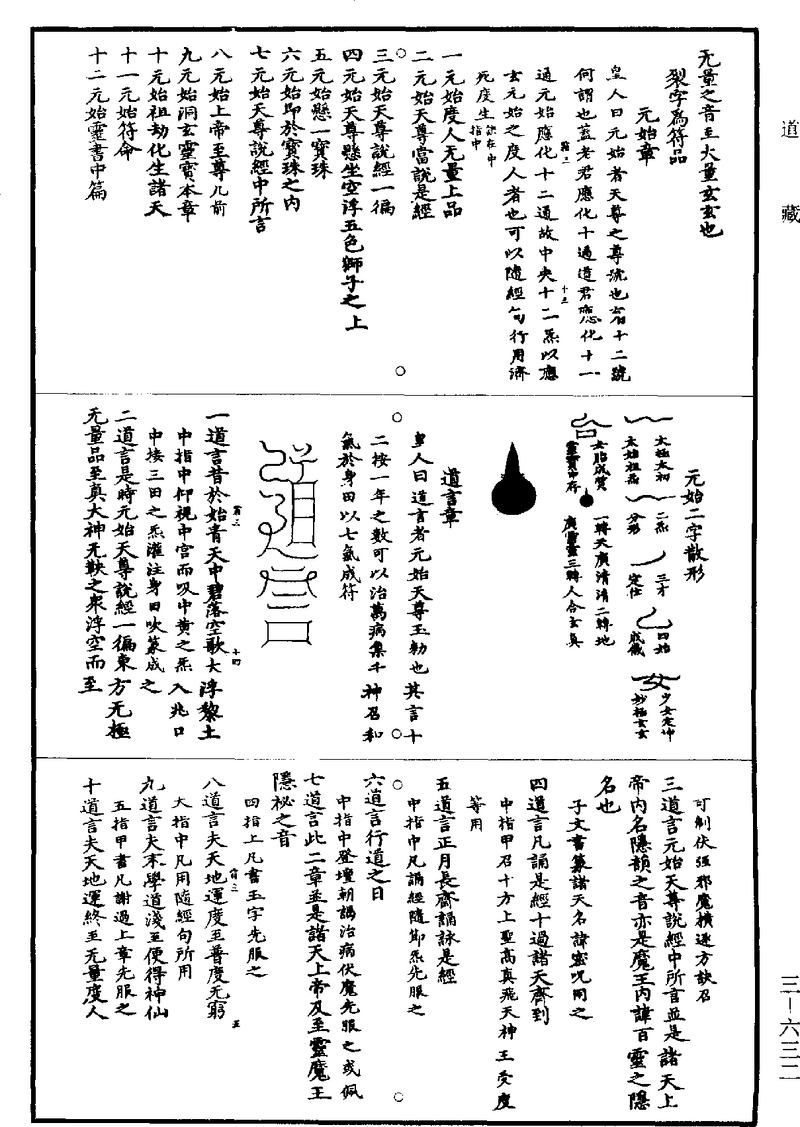 道藏
无量之音至大量玄玄也
裂字為符品
元始章
皇人曰元始者天尊之尊號也有十二號
何謂也蓋老君應化十過道君應化十一
通元始應化十二通故中央十二炁以應
玄元始之度人者也可以隨經句行用濟
死度生訣在中指中
一元始度人无量上品
二元始天尊當說是經
三元始天尊說經一徧
四元始天尊懸坐空浮五色獅子之上
五元始懸一寶珠
六元始即於寶珠之內
七元始天尊說經中所言
八元始上帝至尊几前
九元始洞玄靈寶本章
十元始祖劫化生諸天
十一元始符命
十二元始靈書中篇
元始二字散形
太極太初
太始祖炁
二炁
分形
三才
定位
四始
成儀
少女定坤
妙極玄玄
女胎成質
靈寶中存
一轉天廣清清二轉地
廣靈靈三轉人合玄真
道言章
皇人曰道言者元始天尊玉勑也其言十
二按一年之數可以治萬病集千神召和
氣於身田以七氣成符
一道言昔於始青天中碧落空歌大浮黎土
中指中仰視中宮而吸中黃之炁入兆口
中接三田之炁灌注身田吹篆成之
二道言是時元始天尊說經一徧東方无極
无量品至真大神无鞅之眾浮空而至
可制伏强邪魔橫逐方訣召
三道言元始天尊說經中所言並是諸天上
帝內名隱韻之音亦是魔王內諱百靈之隱
名也
子文書篆諸天名諱密呪用之
四道言凡誦是經十過諸天齊到
中指甲召十方上聖高真飛天神王受度
等用
五道言正月長齋誦詠是經
中指中凡誦經隨節炁先服之
六道言行道之日
中指中登壇朝謁治病伏魔先服之或佩
七道言此二章並是諸天上帝及至靈魔王
隱祕之音
四指上凡書玉字先服之
八道言夫天地運度至普度无窮
大指中凡用隨經句所用
九道言夫末學道淺至使得神仙
五指甲書凡謝過上章先服之
十道言夫天地運終至无量度人
三－六三二